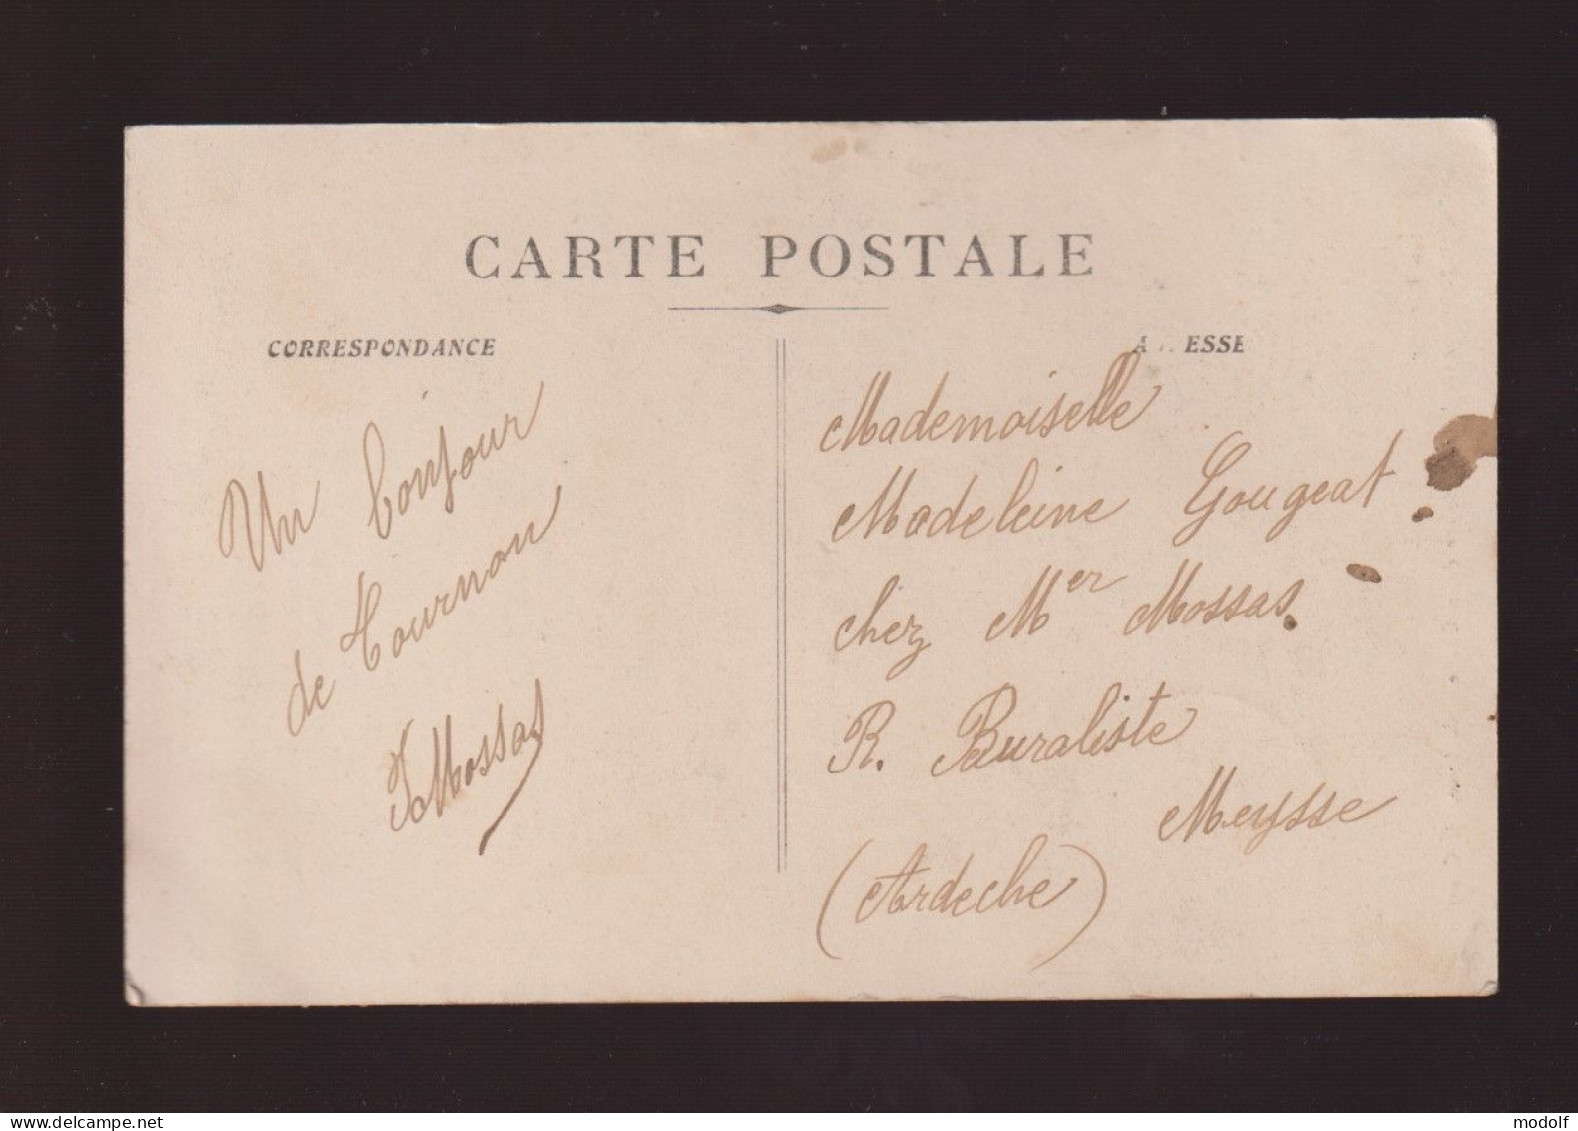 CARTE POSTALE
CORRESPONDANCE
Un bonjour
de Tournon
JMossas
A ESSE
Mademoiselle
Madeleine Gougeat
chez Mer Mossas.
R. Buraliste
Meysse
(Ardeche)
www.delcampe.net
modolf